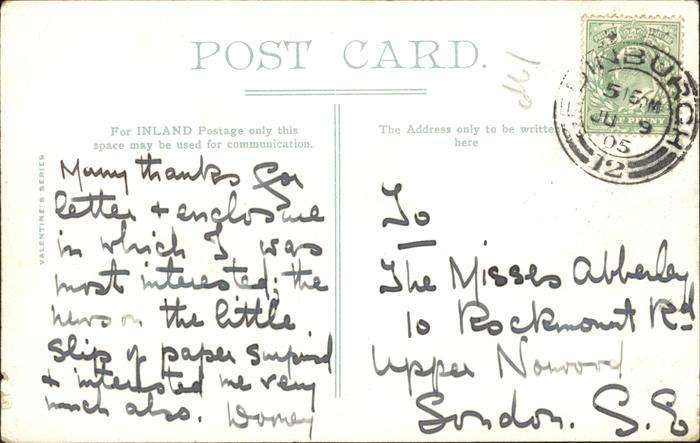 POST CARD.
For INLAND Postage only this
space may be used for communication.
The Address only to be written
here
VALENTINE'S SERIES
Many thanks for
letter + enclosure
in which I was
most interested; the
news on the little
slip of paper surprised
+ interested me very
much also.
To
The Misses Abberley
10 Rockmount Rd
Upper Norwood
London. S.E
EDINBURGH
5 15 PM
JU 9
05
12
HALF PENNY